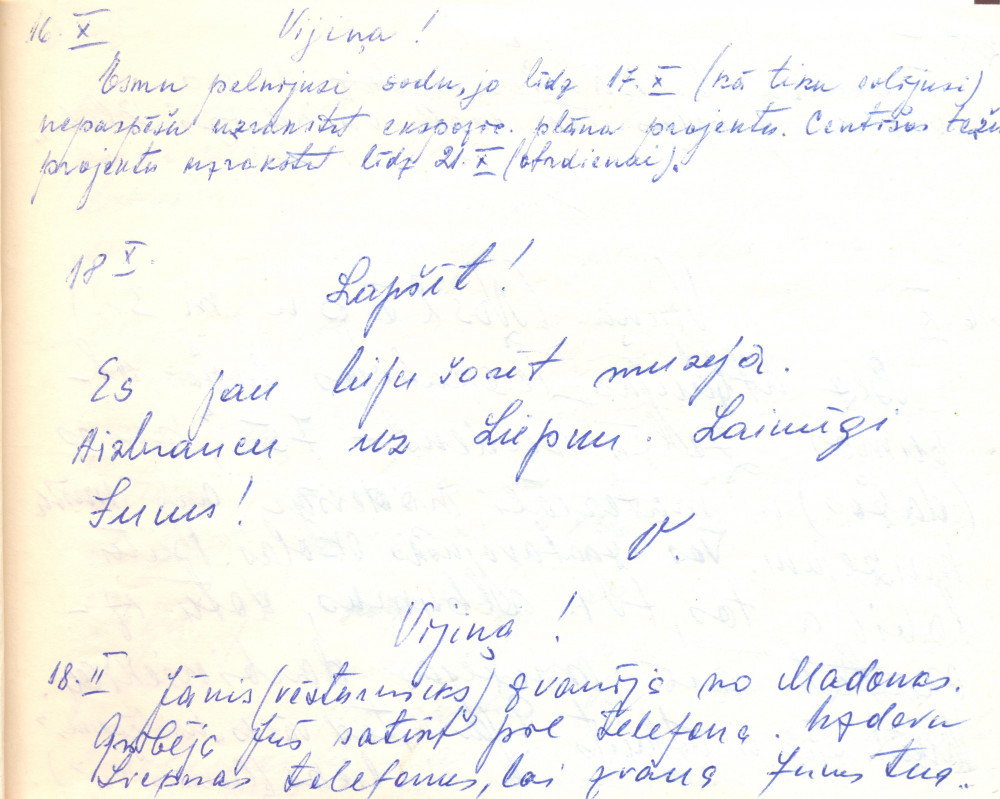 16. X Vijiņa!
Esmu pelnījusi sodu, jo līdz 17. X (kā tiku solījusi)
nepaspēšu uzrakstīt ekspozīc. plāna projektu. Centīšos težu
projektu uzrakstīt līdz 21. X (otrdienai).
18 X.
Lapšēt!
Es jau biju šorīt muzejā.
Aizbraucu uz Liepnu. Laimīgi
Jums!
V.
Vijiņa!
18. II Jānis (vēsturnieks) zvanīja no Madonas.
Gribēja Jūs satikt pie telefona. Izdevu
Liepnas telefonus, lai zvana Jums tur.